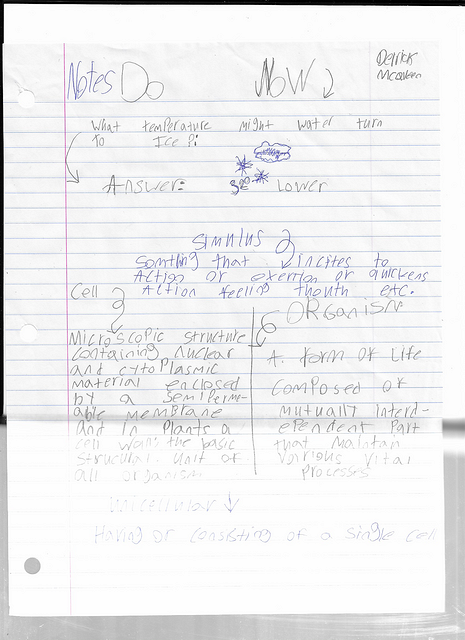 Notes Do Now
Derrick
McQueen
What temperature might water turn
to Ice?
Answer: 32° Lower
Stimulus
Somthing that incites to
Action or exertion or quickens
Action feeling thouth etc.
Cell
Microscopic structure
containing nuclear
and cytoplasmic
material enclosed
by a semiperm-
able membrane
and in Plants a
cell wall; the basic
strucular unit of
all organism
ORganism
A form of Life
composed of
mutually interd-
ependent part
that maintain
various vital
Processes
Unicellular
Having or consisting of a single cell